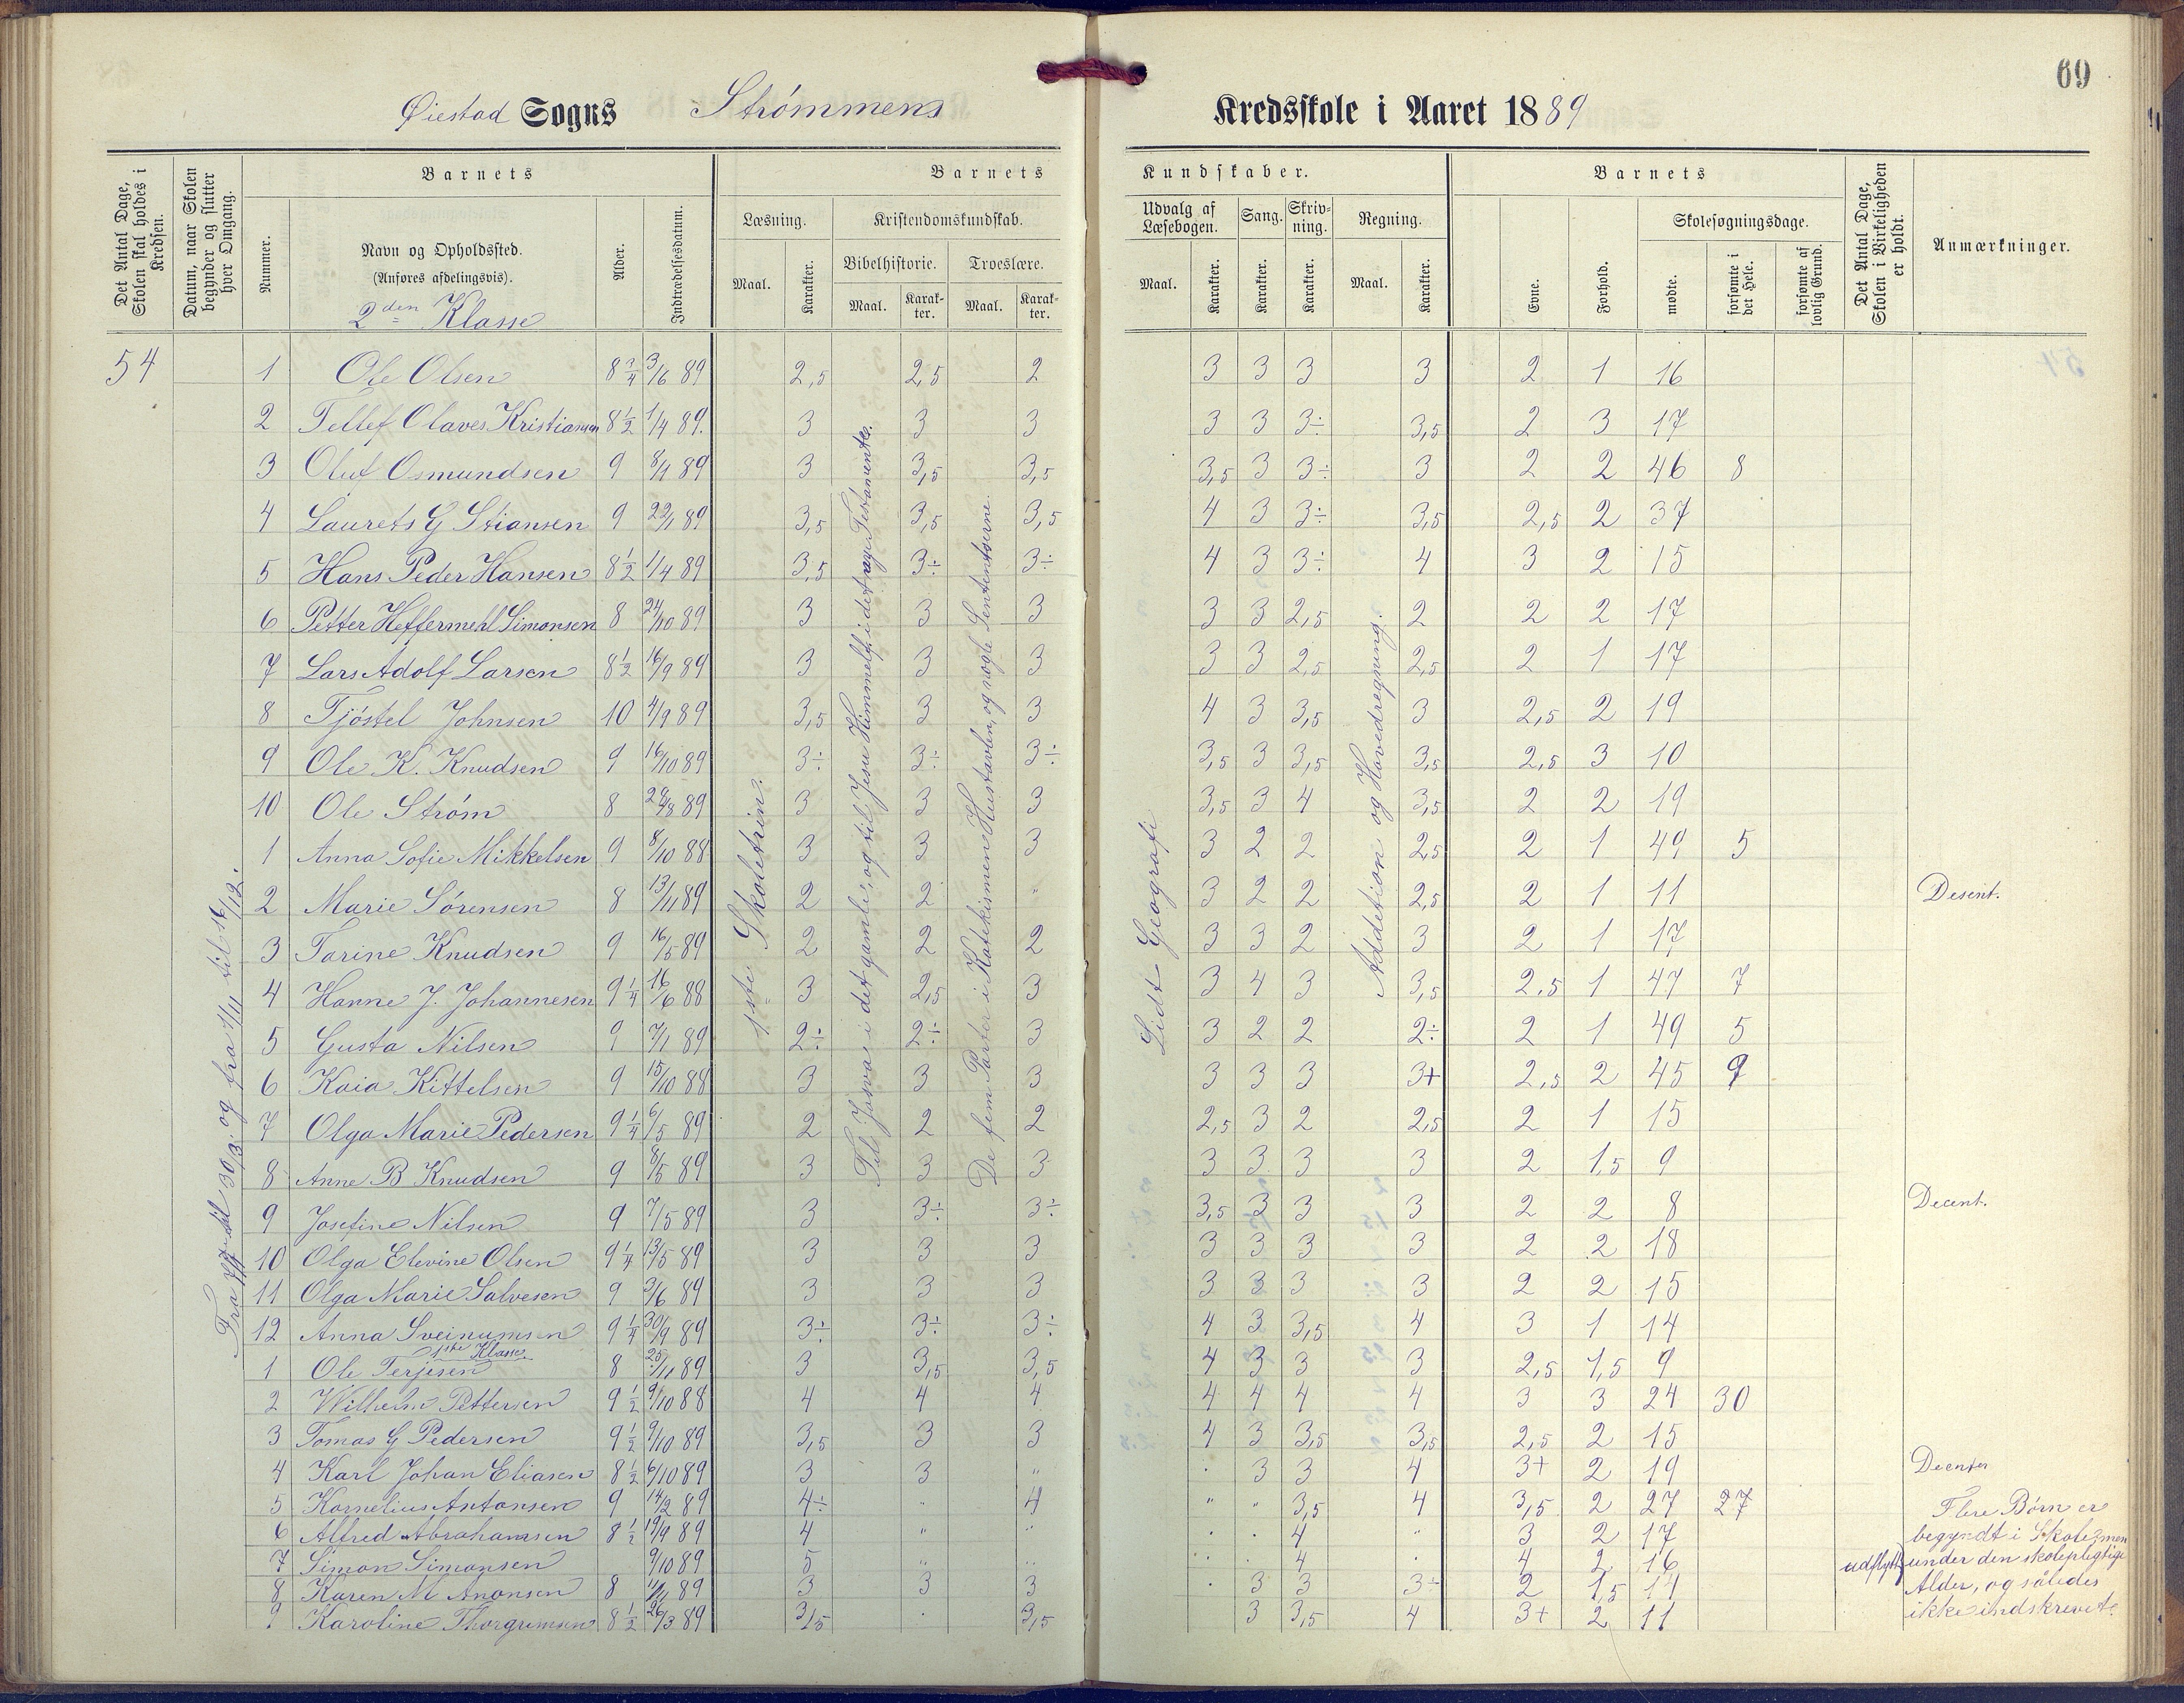 69
Øiestad Sogns Strømmens Kredsskole i Aaret 1889
Det Antal Dage, Skolen skal holdes i Kredsen.
Datum, naar Skolen begynder og slutter hver Omgang.
Barnets
Nummer.
Navn og Opholdssted.
(Anføres afdelingsvis).
2den Klasse
Alder.
Indtrædelsesdatum.
Barnets Kundskaber.
Læsning.
Maal.
Karakter.
Kristendomskundskab.
Bibelhistorie.
Maal.
Karakter.
Troeslære.
Maal.
Karakter.
Udvalg af Læsebogen.
Maal.
Karakter.
Sang.
Karakter.
Skrivning.
Karakter.
Regning.
Maal.
Karakter.
Barnets
Evne.
Forhold.
Skolesøgningsdage.
mødte.
forsømte i det Hele.
forsømte af lovlig Grund.
Det Antal Dage, Skolen i Virkeligheden er holdt.
Anmærkninger.
54 1 Ole Olsen 8 3/4 3/6 89 2,5 2,5 2 3 3 3 3 2 1 16
2 Tellef Olaves Kristiansen 8 1/2 1/4 89. 3 3 3 3 3 3÷ 3,5 2 3 17
3 Oluf Osmundsen 9 8/1 89 3 3,5 3,5 3,5 3 3÷ 3 2 2 46 8
4 Laurets G Stiansen 9 22/1 89 3,5 3,5 3,5 4 3 3÷ 3,5 2,5 2 37
5 Hans Peder Hansen 8 1/2 1/4 89 3,5 3÷ 3÷ 4 3 3÷ 4 3 2 15
6 Petter Heffermehl Simonsen 8 24/10 89 3 3 3 3 3 2,5 2 2 2 17
7 Lars Adolf Larsen 8 1/2 16/9 89 3 3 3 3 3 2,5 2,5 2 1 17
8 Tjøstel Johnsen 10 4/9 89 3,5 3 3 4 3 3,5 3 2,5 2 19
9 Ole K. Knudsen 9 16/10 89 3÷ 3÷ 3÷ 3,5 3 3,5 3,5 2,5 3 10
10 Ole Strøm 8 89 3 3 3 3,5 3 4 3,5 2 2 19
1 Anna Sofie Mikkelsen 9 8/10 88 3 3 3 3 2 2 2,5 2 1 49 5
2 Marie Sørensen 8 13/11 89 2 2 " 3 2 2 2,5 2 1 11 Desent.
3 Tarine Knudsen 9 16/5 89 2 2 2 3 3 2 3 2 1 17
4 Hanne J. Johannesen 9 1/4 16/6 88 3 2,5 3 3 4 3 3,5 2,5 1 47 7
5 Gusta Nilsen 9 7/1 89 2÷ 2÷ 3 3 2 2 2÷ 2 1 49 5
6 Kaia Kittelsen 9 15/10 88 3 3 3 3 3 3 3+ 2,5 2 45 9
7 Olga Marie Pedersen 9 1/4 6/5 89 2 2 2 2,5 3 2 2,5 2 1 15
8 Anne B Knudsen 9 8/5 89 3 3 3 3 3 3 3 2 1,5 9
9 Josefine Nilsen 9 7/5 89 3 3÷ 3÷ 3,5 3 3 3 2 2 8 Decent.
10 Olga Elevine Olsen 9 1/4 13/5 89 3 3 3 3 3 3 3 2 2 18
11 Olga Marie Salvesen 9 3/6 89 3 3 3 3 3 3 3 2 2 15
12 Anna Sveinumsen 9 1/4 30/9 89 3÷ 3÷ 3÷ 4 3 3,5 4 3 1 14
1ste Klasse
1 Ole Terjesen 8 25/11 89 3 3,5 3,5 4 3 3 3 2,5 1,5 9
2 Wilhelm Pettersen 9 1/2 9/10 88 4 4 4 4 4 4 4 3 3 24 30
3 Tomas G Pedersen 9 1/2 9/10 89 3,5 3 3 4 3 3,5 3,5 2,5 2 15
4 Karl Johan Eliasen 8 1/2 6/10 89 3 3 " 3 3 4 3+ 2 19
5 Kornelius Antonsen 9 14/2 89 4÷ " 4 " " 3,5 4 3,5 2 27 27 Flere Børn er
6 Alfred Abrahamsen 8 1/2 19/9 89 4 " " 4 " 3 2 17 begyndt i Skolen men
7 Simon Simonsen 9/10 89 5 " " 4 4 2 16 udflytt under den skolepligtige
8 Karen M Anonsen 8 11/11 89 3 3 3 3 3 3÷ 2 1,5 14 Alder, og således
9 Karoline Thorgrimsen 8 1/2 26/3 89 3,5 3,5 3 3,5 4 3+ 2 11 ikke indskrevet.
til 30/3. og fra 1/11 til 16/12.
1ste Skoletrin.
Til Josva i det gamle, og til Jesu Himmelf. i det nye Testamente.
De fem Parter i Katekismen, Hustavlen, og nogle Sententserne.
Lidt Geografi
Addetion og Hovedregning.